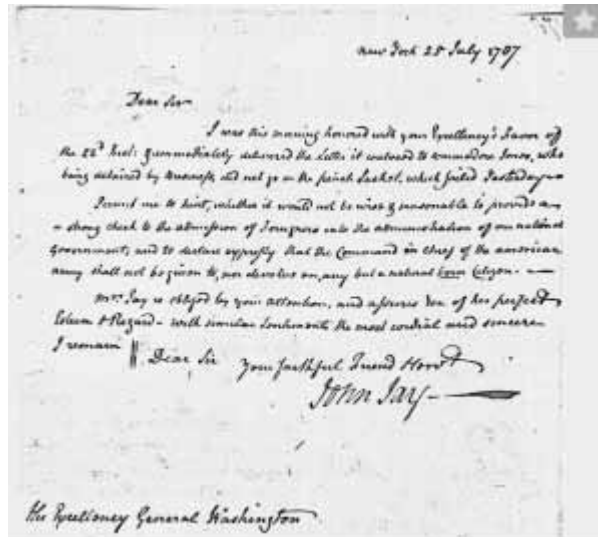 New York 25 July 1787
Dear Sir
I was this morning honored with your Excellency's Favor of
the 22d Inst: & immediately delivered the Letter it enclosed to commodore Jones, who
being detained by Business, did not go in the french Packet, which sailed Yesterday.
Permit me to hint, whether it would not be wise & seasonable to provide a
strong check to the admission of Foreigners into the administration of our national
Government; and to declare expressly that the Command in chief of the american
army shall not be given to, nor devolve on, any but a natural born Citizen.
Mrs. Jay is obliged by your attention, and assures You of her perfect
Esteem & Regard - with similar Sentiments the most cordial and sincere
I remain Dear Sir Your faithful Friend & Servt
John Jay
His Excellency General Washington